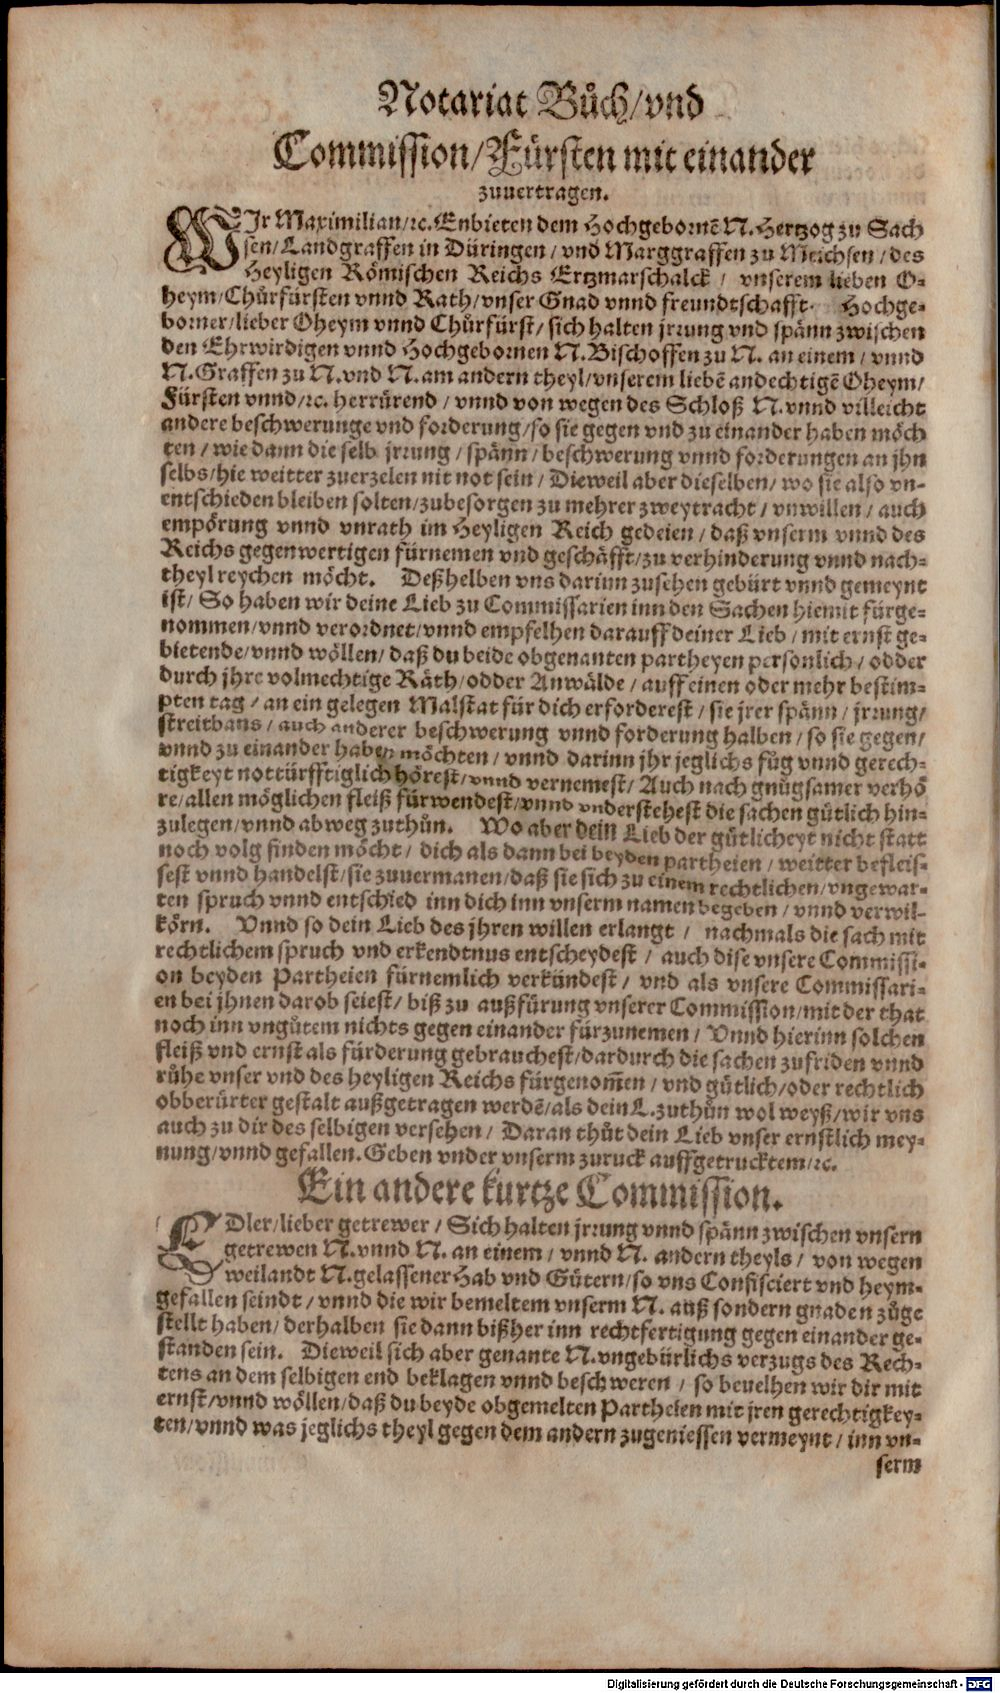 Notariat Bůch/vnd
Commission/Fürsten mit einander
zuuertragen.
WJr Maximilian/ꝛc. Enbieten dem Hochgebornẽ N. Hertzog zu Sach
sen/Landgraffen in Düringen/vnd Marggraffen zu Meichsen/des
Heyligen Römischen Reichs Ertzmarschalck/ vnserem lieben O-
heym/Chůrfürsten vnnd Rath/vnser Gnad vnnd freundtschafft. Hochge-
borner/lieber Oheym vnnd Chůrfürst/sich halten jrrung vnd spänn zwischen
den Ehrwirdigen vnnd Hochgebornen N. Bischoffen zu N. an einem/vnnd
N. Graffen zu N. vnd N. am andern theyl/vnserem liebẽ andechtigẽ Oheym/
Fürsten vnnd/ꝛc. herrürend/vnnd von wegen des Schloß N. vnnd villeicht
andere beschwerunge vnd forderung/so sie gegen vnd zu einander haben möch
ten/wie dann die selb jrrung/spänn/beschwerung vnnd forderungen an jhn
selbs/hie weitter zuerzelen nit not sein/Dieweil aber dieselben/wo sie also vn-
entschieden bleiben solten/zubesorgen zu mehrer zweytracht/vnwillen/auch
empörung vnnd vnrath im Heyligen Reich gedeien/daß vnserm vnnd des
Reichs gegenwertigen fürnemen vnd geschäfft/zu verhinderung vnnd nach-
theyl reychen möcht. Deßhelben vns darinn zusehen gebürt vnnd gemeynt
ist/So haben wir deine Lieb zu Commissarien inn den Sachen hiemit fürge-
nommen/vnnd verordnet/vnnd empfelhen darauff deiner Lieb/mit ernst ge-
bietende/vnnd wöllen/daß du beide obgenanten partheyen personlich/odder
durch jhre volmechtige Räth/odder Anwälde/auff einen oder mehr bestim-
pten tag/an ein gelegen Malstat für dich erforderest/sie jrer spänn/jrrung/
streithans/auch anderer beschwerung vnnd forderung halben/so sie gegen/
vnnd zu einander haben möchten/vnnd darinn jhr jeglichs fůg vnnd gerech-
tigkeyt nottürfftiglich hörest/vnnd vernemest/Auch nach gnůgsamer verhö
re/allen möglichen fleiß fürwendest/vnnd vnderstehest die sachen gütlich hin-
zulegen/vnnd abweg zuthůn. Wo aber dein Lieb der gütlicheyt nicht statt
noch volg finden möcht/dich als dann bei beyden partheien/weitter befleis-
sest vnnd handelst/sie zuuermanen/daß sie sich zu einem rechtlichen/vngewar-
ten spruch vnnd entschied inn dich inn vnserm namen begeben/vnnd verwil-
körn. Vnnd so dein Lieb des jhren willen erlangt/ nachmals die sach mit
rechtlichem spruch vnd erkendtnus entscheydest/auch dise vnsere Commissi-
on beyden Partheien fürnemlich verkündest/vnd als vnsere Commissari-
en bei jhnen darob seiest/biß zu außfürung vnserer Commission/mit der that
noch inn vngůtem nichts gegen einander fürzunemen/Vnnd hierinn solchen
fleiß vnd ernst als fürderung gebrauchest/dardurch die sachen zu friden vnnd
růhe vnser vnd des heyligen Reichs fürgenom̃en/vnd gütlich/oder rechtlich
obberürter gestalt außgetragen werdẽ/als dein L. zuthůn wol weyß/wir vns
auch zu dir des selbigen versehen/Daran thůt dein Lieb vnser ernstlich mey-
nung/vnnd gefallen. Geben vnder vnserm zuruck auffgetrucktem/ꝛc.
Ein andere kurtze Commission.
EDler/lieber getrewer/Sich halten jrrung vnnd spänn zwischen vnsern
getrewen N. vnnd N. an einem/vnnd N. andern theyls/von wegen
weilandt N. gelassener Hab vnd Gütern/so vns Confisciert vnd heym-
gefallen seindt/vnnd die wir bemeltem vnserm N. auß sondern gnaden zůge
stellt haben/derhalben sie dann bißher inn rechtfertigung gegen einander ge-
standen sein. Dieweil sich aber genante N. vngebürlichs verzugs des Rech-
tens an dem selbigen end beklagen vnnd beschweren/so beuelhen wir dir mit
ernst/vnnd wöllen/daß du beyde obgemelten Partheien mit jren gerechtigkey-
ten/vnnd was jeglichs theyl gegen dem andern zugeniessen vermeynt/inn vn-
serm
Digitalisierung gefördert durch die Deutsche Forschungsgemeinschaft - DFG